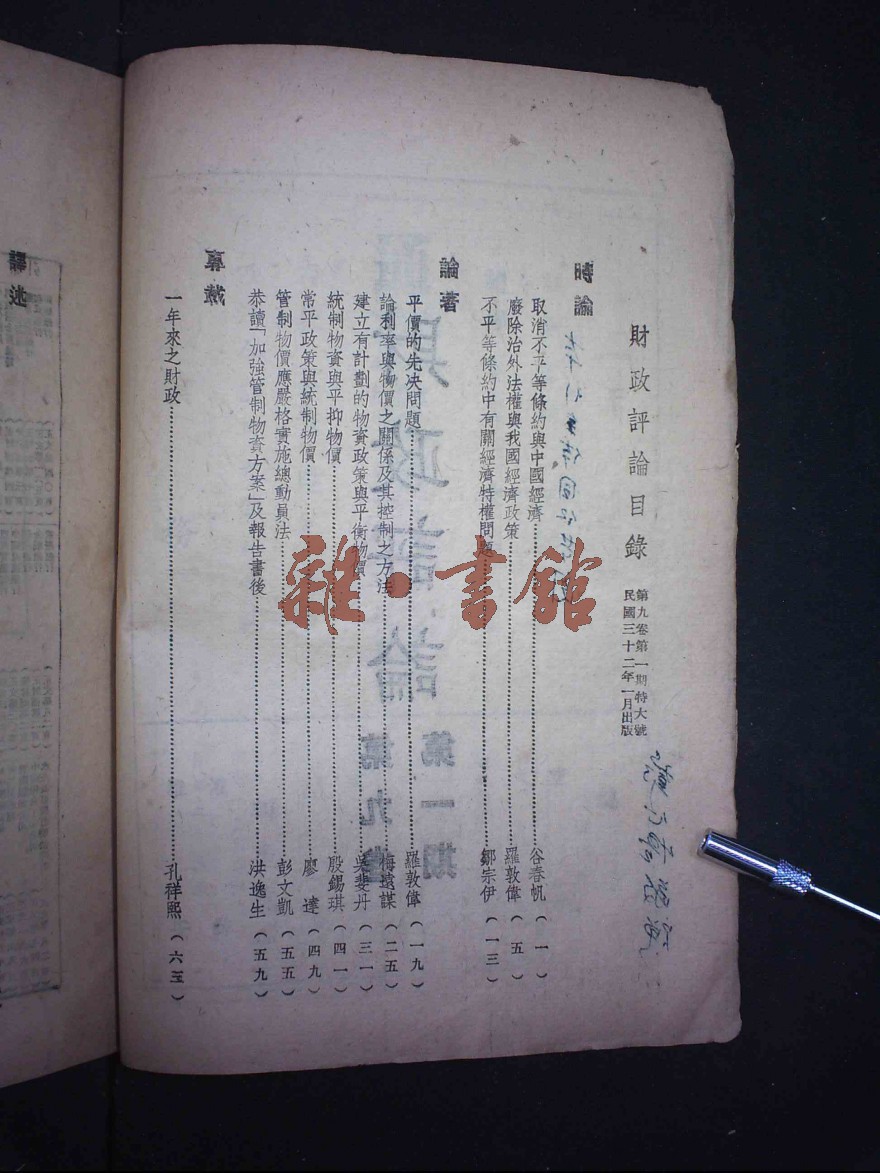 財政評論目錄
第九卷第一期特大號
民國三十二年一月出版
時論
取消不平等條約與中國經濟……谷春帆(一)
廢除治外法權與我國經濟政策……羅敦偉(五)
不平等條約中有關經濟特權問題……鄒宗伊(一三)
論著
平價的先决問題……羅敦偉(一九)
論利率與物價之關係及其控制之方法……梅遠謀(二五)
建立有計劃的物資政策與平衡物價……吳斐丹(三一)
統制物資與平抑物價……殷錫琪(四一)
常平政策與統制物價……廖達(四九)
管制物價應嚴格實施總動員法……彭文凱(五五)
恭讀「加強管制物資方案」及報告書後……洪逸生(五九)
專載
一年來之財政……孔祥熙(六三)
譯述
財政評論
第九卷
第一期
雜·書館